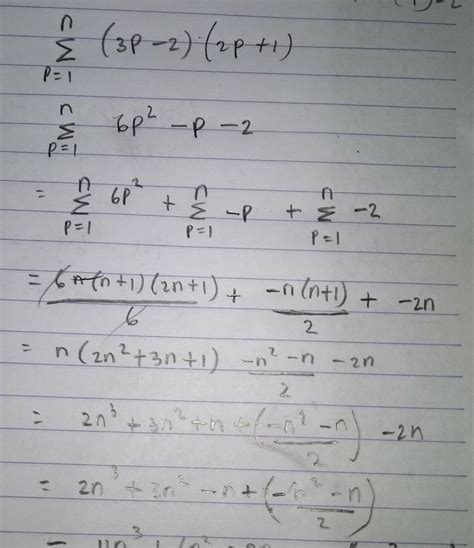 (1)-2
n
Σ (3p-2)·(2p+1)
p=1
n
Σ 6p² - p - 2
p=1
= n Σ p=1 6p² + n Σ p=1 -p + n Σ p=1 -2
= 6n(n+1)(2n+1)/6 + -n(n+1)/2 + -2n
= n(2n²+3n+1) -n²-n/2 -2n
= 2n³ + 3n² + n + (-n²-n/2) -2n
= 2n³ + 3n² - n + (-n²-n/2)